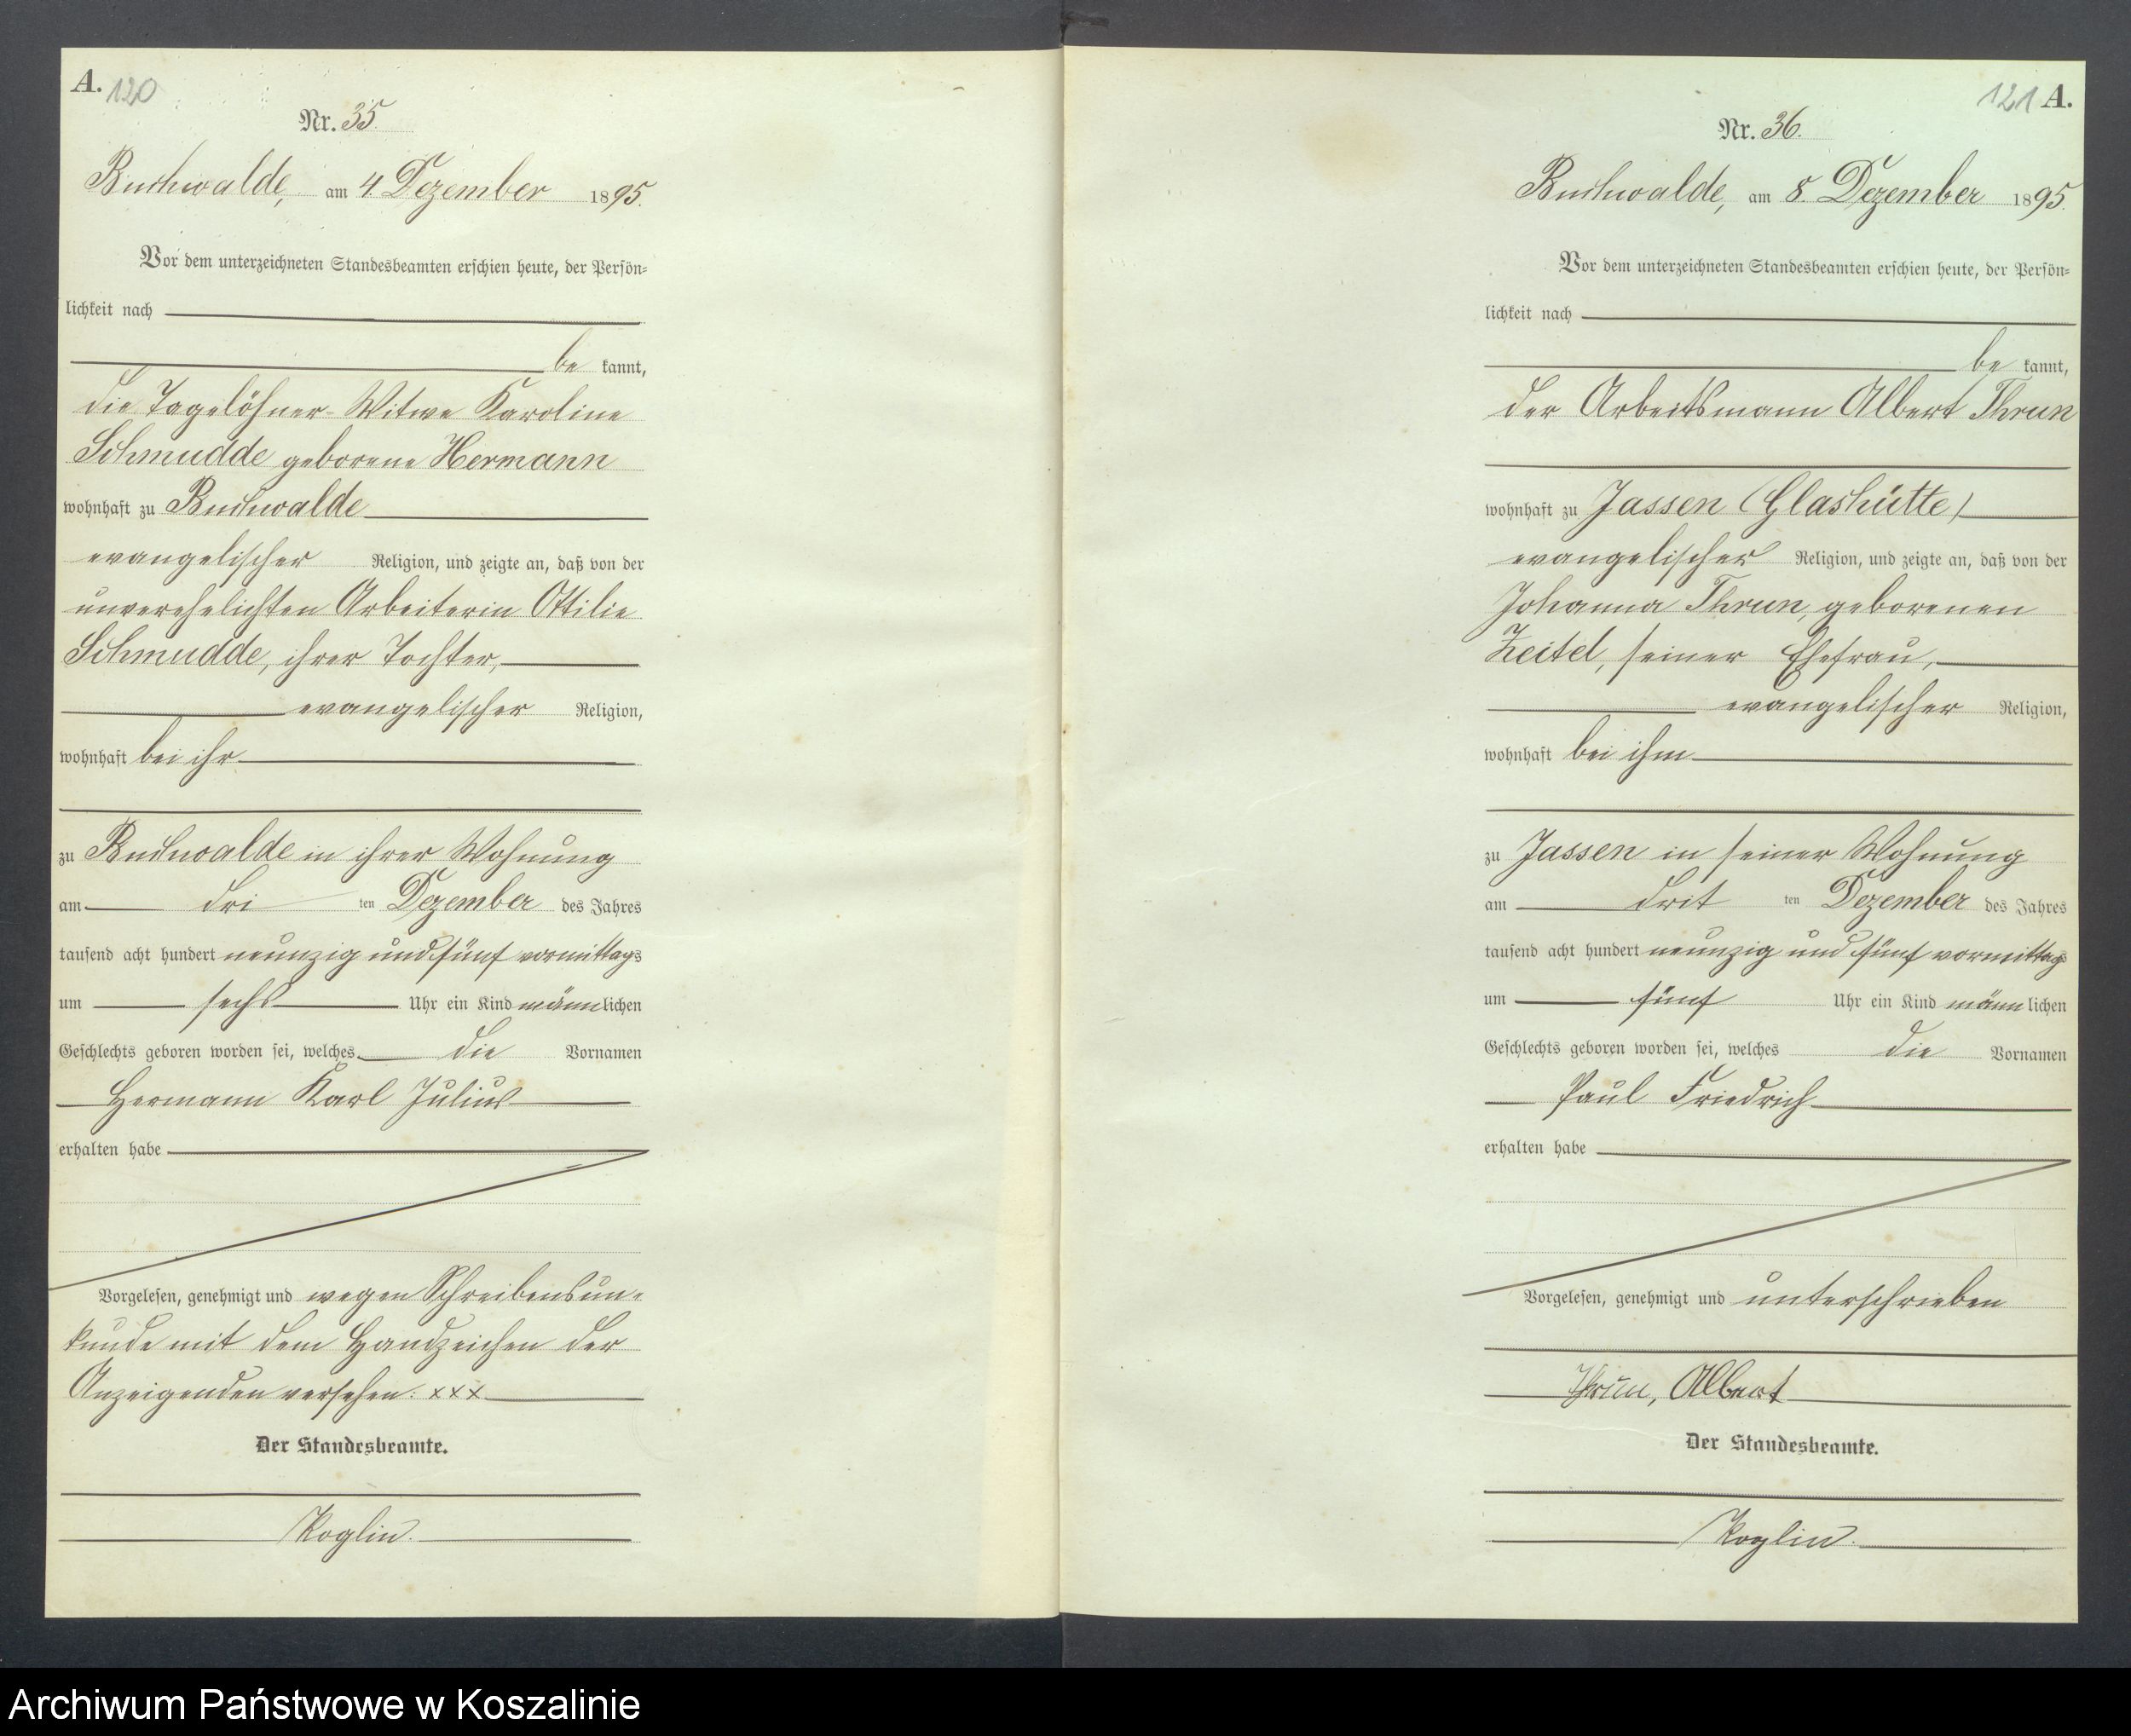 A. 120
Nr. 35.
Buchwalde, am 4. Dezember 1895.
Vor dem unterzeichneten Standesbeamten erschien heute, der Persön-
lichkeit nach
be kannt,
die Tagelöhner-Witwe Karoline
Schmudde geborene Hermann
wohnhaft zu Buchwalde
evangelischer Religion, und zeigte an, daß von der
unverehelichten Arbeiterin Ottilie
Schmudde, ihrer Tochter,
evangelischer Religion,
wohnhaft bei ihr
zu Buchwalde in ihrer Wohnung
am dri ten Dezember des Jahres
tausend acht hundert neunzig und fünf vormittags
um sechs Uhr ein Kind männlichen
Geschlechts geboren worden sei, welches die Vornamen
Hermann Karl Julius
erhalten habe
Vorgelesen, genehmigt und wegen Schreibensun-
kunde mit dem Handzeichen der
Anzeigenden versehen. xxx
Der Standesbeamte.
Koglin.
121 A.
Nr. 36.
Buchwalde, am 8. Dezember 1895.
Vor dem unterzeichneten Standesbeamten erschien heute, der Persön-
lichkeit nach
be kannt,
der Arbeitsmann Albert Thrun
wohnhaft zu Jassen (Glashütte)
evangelischer Religion, und zeigte an, daß von der
Johanna Thrun, geborenen
Zeitel, seiner Ehefrau,
evangelischer Religion,
wohnhaft bei ihm
zu Jassen in seiner Wohnung
am drit ten Dezember des Jahres
tausend acht hundert neunzig und fünf vormittags
um fünf Uhr ein Kind männlichen
Geschlechts geboren worden sei, welches die Vornamen
Paul Friedrich
erhalten habe
Vorgelesen, genehmigt und unterschrieben
Thrun, Albert
Der Standesbeamte.
Koglin.
Archiwum Państwowe w Koszalinie